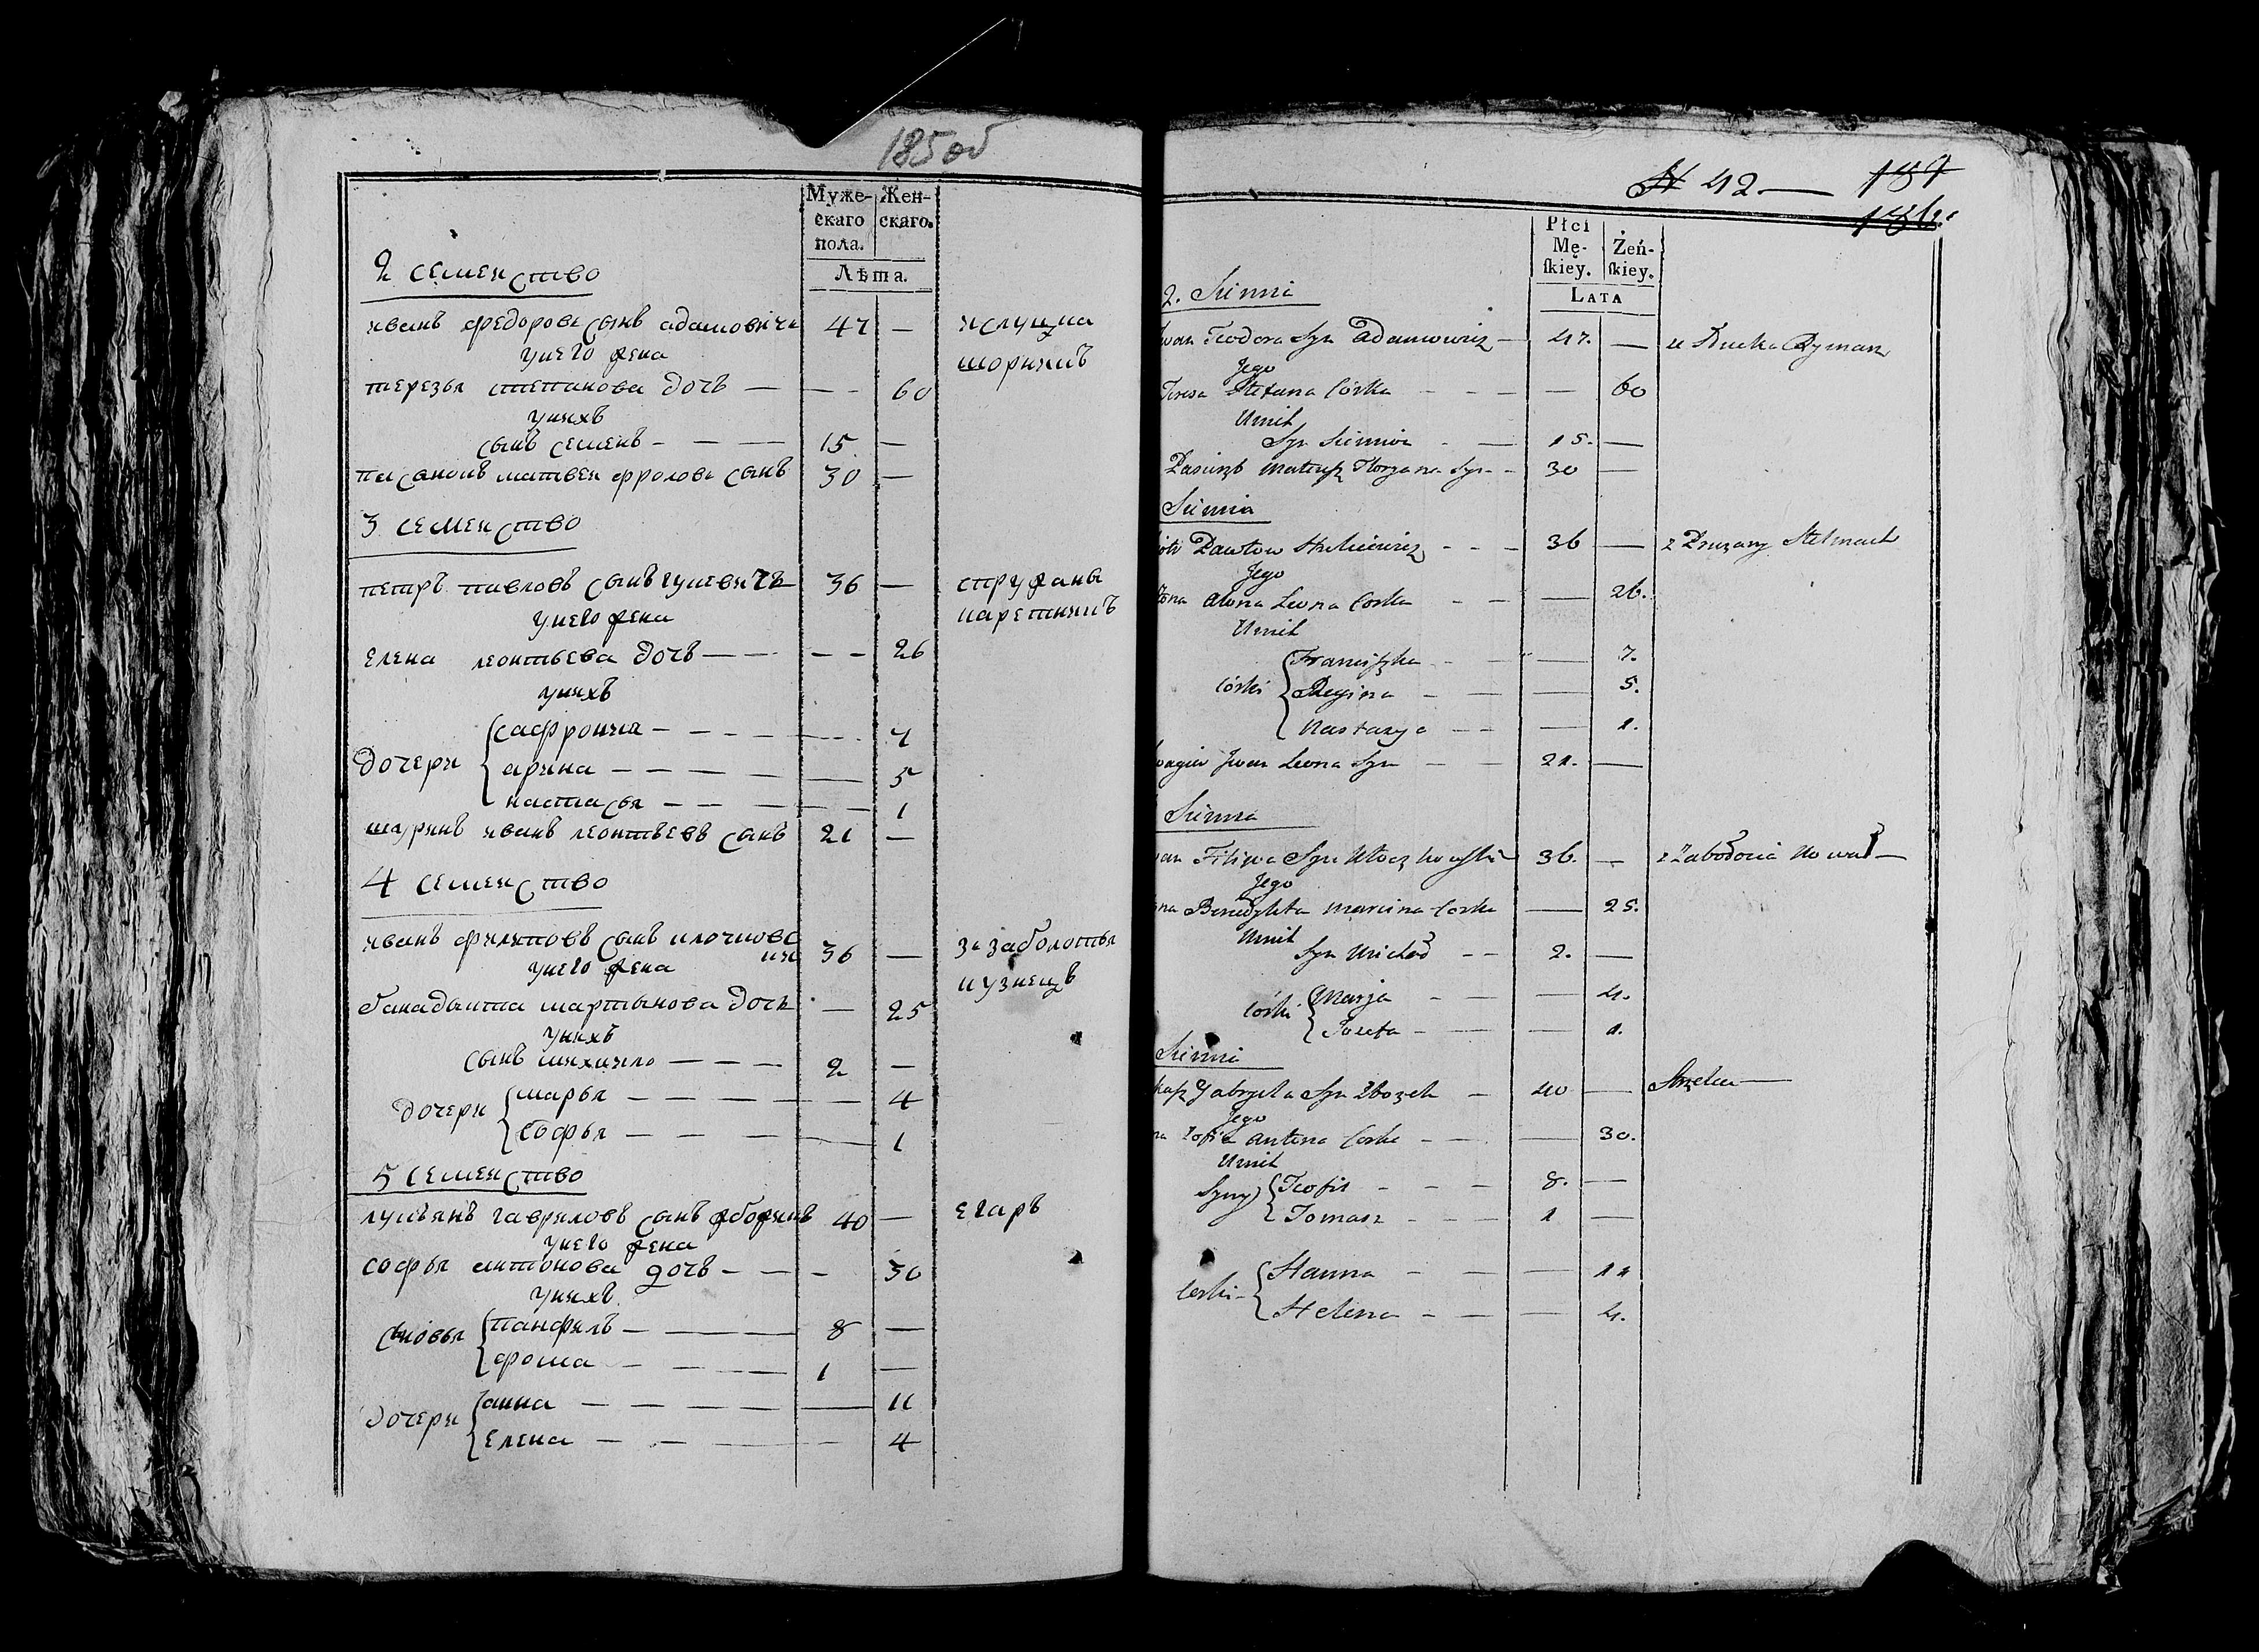 185 об
Муже-
скаго
пола.
Жен-
скаго.
Лѣта.
2 семейство
иванъ федоровъ сынъ адамовичъ 47 — ислуцка
у него жена шорникъ
терезья степанова дочь — — — 60
у нихъ
сынъ семенъ — — — 15 —
пасанокъ матвей фролова сынъ 30 —
3 семейство
петръ павловъ сынъ гулевичъ 36 — спружаны
у него жена каретникъ
елена леонтьева дочь — — — — 26
у нихъ
дочери сафронія — — — — 7
арина — — — — — 5
настасья — — — — 1
шуринъ иванъ леонтьевъ сынъ 21 —
4 семейство
иванъ филиповъ сынъ клочковс
кий 36 — за заболотья
у него жена кузнецъ
банадыкта мартынова дочь — 25
у нихъ
сынъ михайло — — — 2 —
дочери марья — — — — 4
софья — — — — 1
5 семейство
лукьянъ гавриловъ сынъ 40 — егарь
у него жена
софья антонова дочь — — — 30
у нихъ
сыновья панфилъ — — — 8 —
фома — — — 1 —
дочери анна — — — — — 11
елена — — — — 4
N 42. — 187
186.
Płci
Mę-
skiey.
Żeń-
skiey.
LATA
2. Siemii
Iwan Teodora Syn Adamowicz — 47. — z Słucka Rymarz
Jego
Teresa Stefana Córka — — — — 60
U nich
Syn Siemion — — 15. —
Pasierzb Mateusz Floryana Syn — 30 —
Siemia
Piotr Pawłow — — — 36 — z Prużany Stelmach
Jego
Żona Alona Leona Corka — — — 26.
U nich
Córki Franciszka — — — 7.
Regina — — — 5.
Nastazya — — — 1.
Szwagier Iwan Leona Syn — — 21. —
Siemia
Iwan Filipa Syn Kłoczkowski 36. — z Zabołocia Kowal —
Jego
Żona Benedykta Marcina Corka — 25.
U nich
Syn Michał — — 2. —
Córki Marja — — — 4.
Jozefa — — — 1.
Siemii
Łukasz Gabryela Syn — 40 — Strzelec —
Jego
Żona Zofia Antona Corka — — — 30.
U nich
Syny Teofil — — — 8. —
Tomasz — — — 1 —
Corki — Hanna — — — 11
Helena — — — 4.